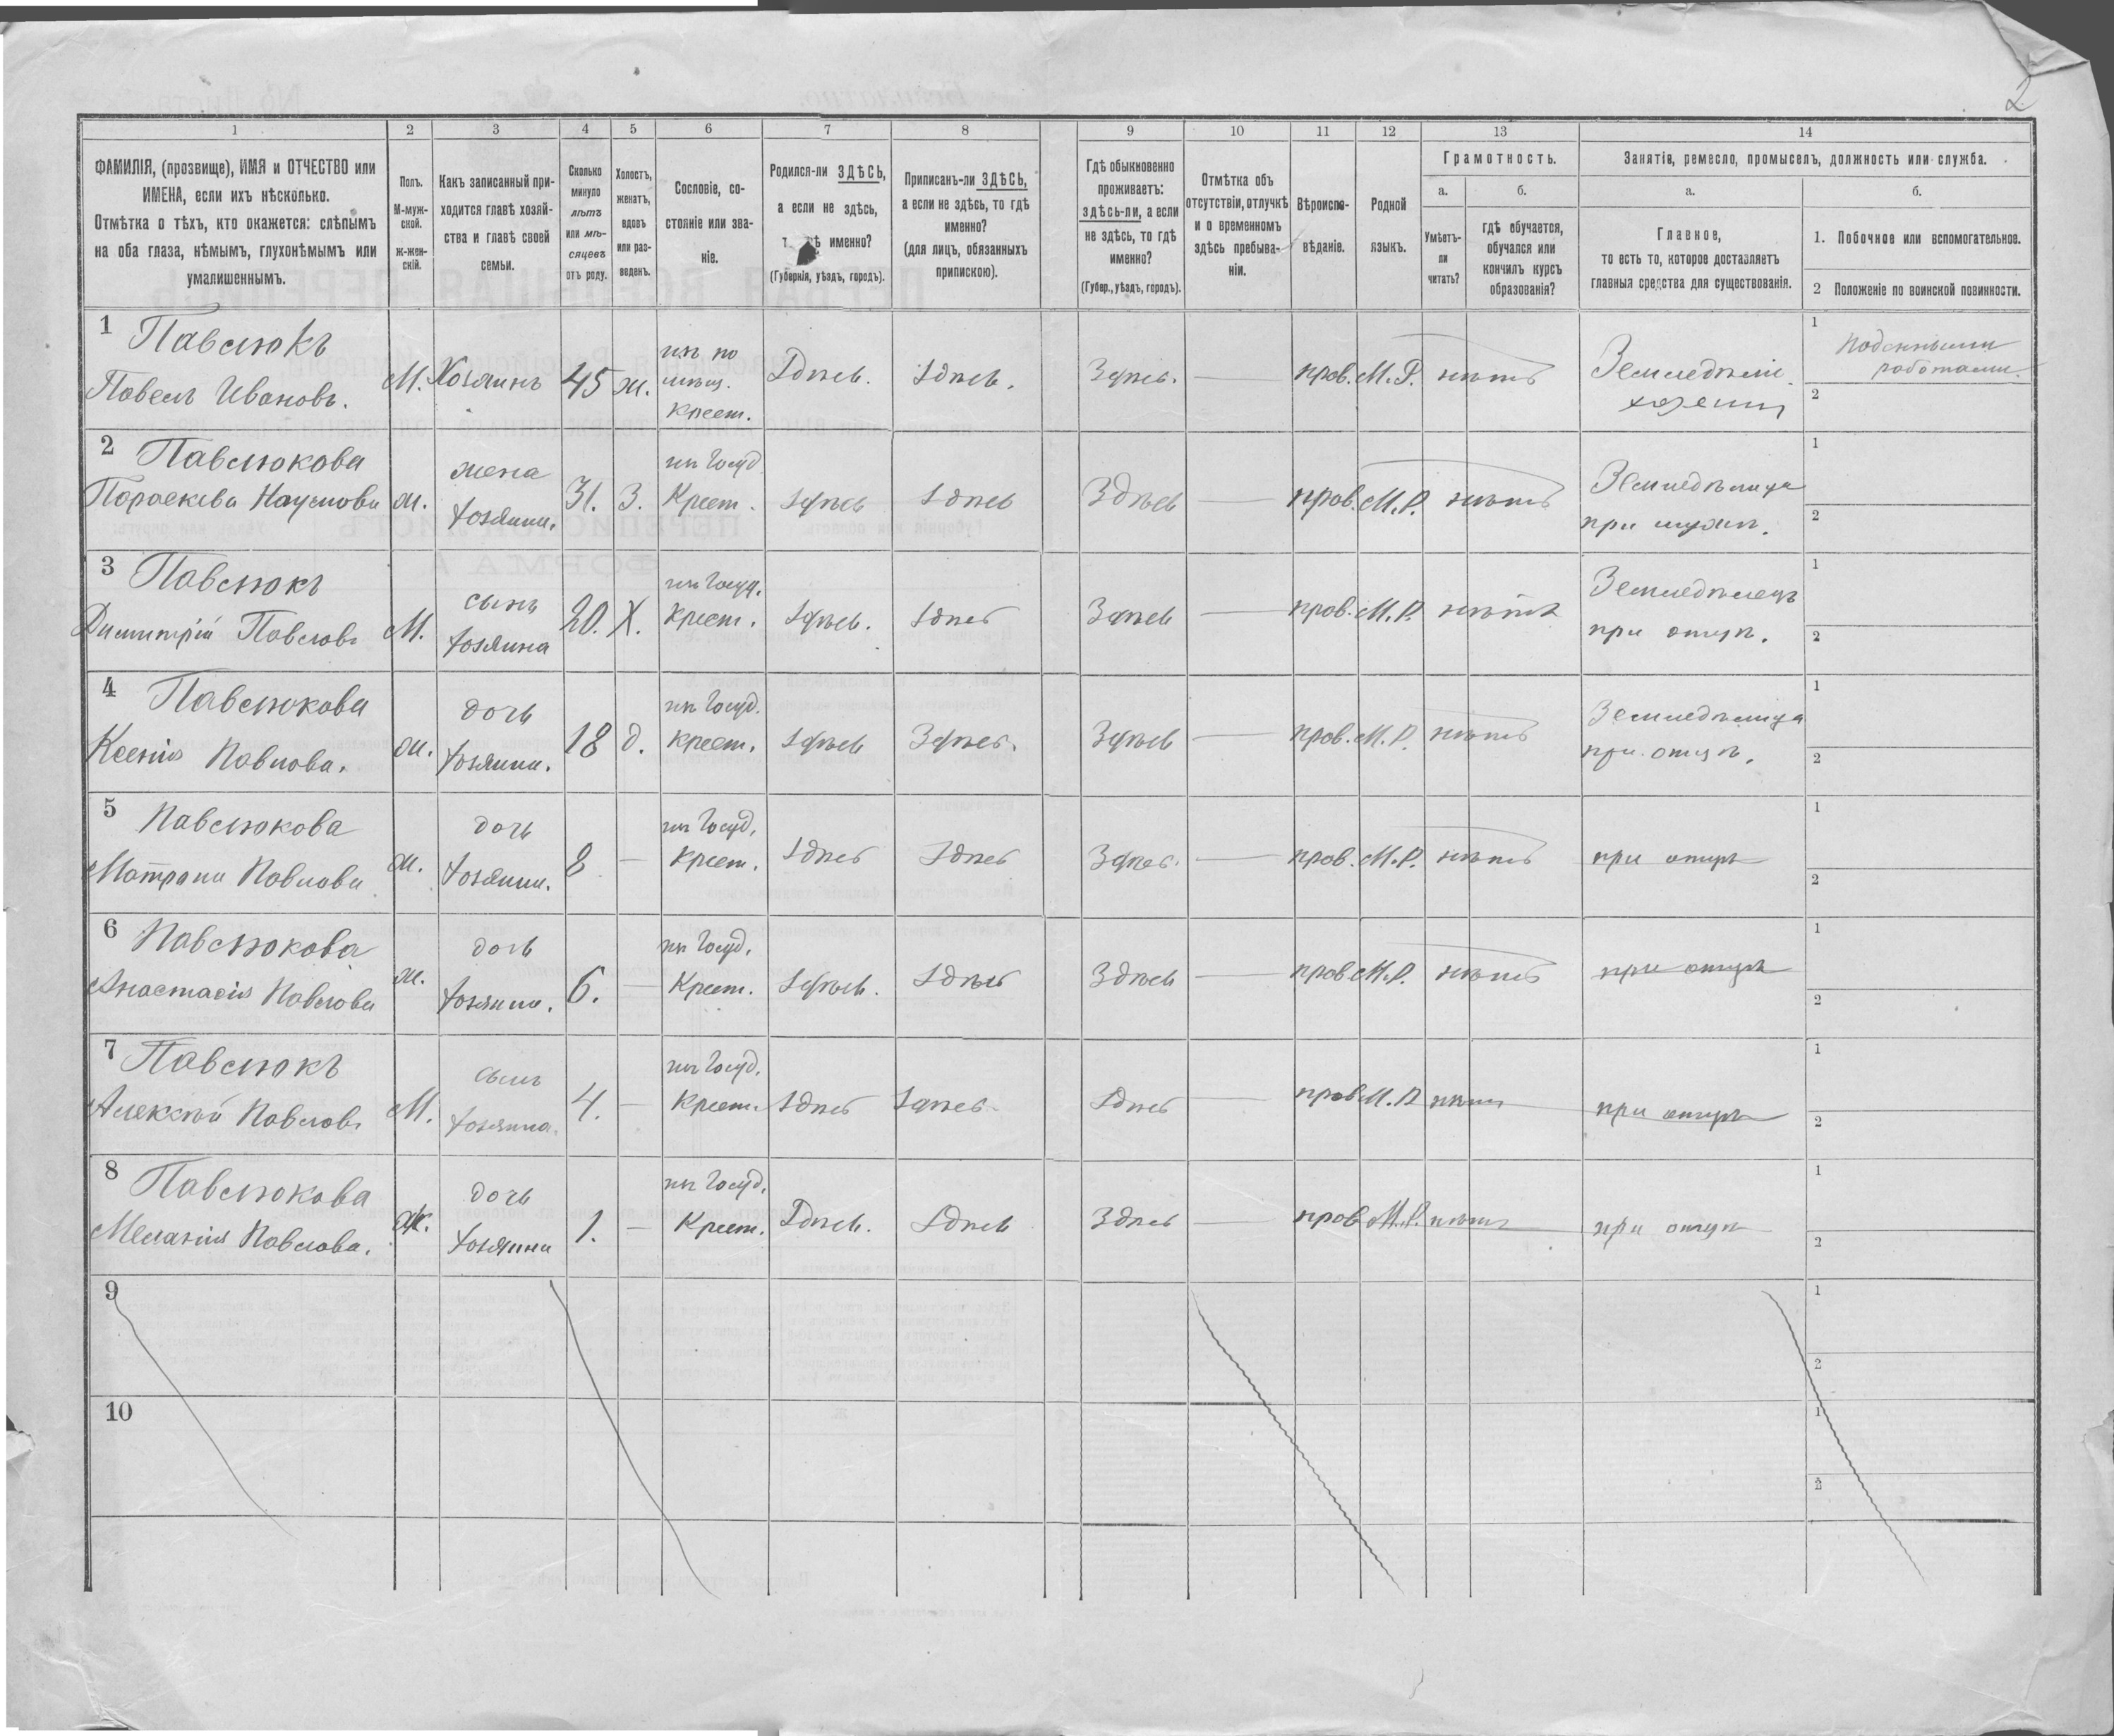 2
1 2 3 4 5 6 7 8 9 10 11 12 13 14
ФАМИЛІЯ, (прозвище), ИМЯ и ОТЧЕСТВО или
ИМЕНА, если ихъ нѣсколько.
Отмѣтка о тѣхъ, кто окажется: слѣпымъ
на оба глаза, нѣмымъ, глухонѣмымъ или
умалишеннымъ.
Полъ.
М-муж-
ской.
Ж-жен-
скій.
Какъ записанный при-
ходится главѣ хозяй-
ства и главѣ своей
семьи.
Сколько
минуло
лѣтъ
или мѣ-
сяцевъ
отъ роду.
Холостъ,
женатъ,
вдовъ
или раз-
веденъ.
Сословіе, со-
стояніе или зва-
ніе.
Родился-ли ЗДѢСЬ,
а если не здѣсь,
именно?
(Губернія, уѣздъ, городъ).
Приписанъ-ли ЗДѢСЬ,
а если не здѣсь, то гдѣ
именно?
(для лицъ, обязанныхъ
припискою).
Гдѣ обыкновенно
проживаетъ:
здѣсь-ли, а если
не здѣсь, то гдѣ
именно?
(Губер., уѣздъ, городъ).
Отмѣтка объ
отсутствіи, отлучкѣ
и о временномъ
здѣсь пребыва-
ніи.
Вѣроиспо-
вѣданіе.
Родной
языкъ.
Грамотность.
а.
Умѣетъ-
ли
читать?
б.
гдѣ обучается,
обучался или
кончилъ курсъ
образованія?
Занятіе, ремесло, промыселъ, должность или служба.
а.
Главное,
то есть то, которое доставляетъ
главныя средства для существованія.
б.
1. Побочное или вспомогательное.
2 Положеніе по воинской повинности.
1 Павлюкъ
Павелъ Ивановъ. М. Хозяинъ 45 ж.
крест. Здѣсь. Здѣсь. Здѣсь. прав. М.Р. нѣтъ Земледѣліе
хозяинъ
1 Поденными
работами.
2
2 Павлюкова
Параскева Наумова ж. жена
хозяина. 31. З. Крест. Здѣсь Здѣсь Здѣсь — прав. М.Р. нѣтъ Земледѣлица
при мужѣ.
1
2
3 Павлюкъ
Димитрій Павловъ М. сынъ
хозяина 20. Х. крест. Здѣсь. Здѣсь Здѣсь — прав. М.Р. нѣтъ Земледѣлецъ
при отцѣ.
1
2
4 Павлюкова
Ксенія Павлова. ж. дочь
хозяина. 18 д. крест. Здѣсь Здѣсь. Здѣсь — прав. М.Р. нѣтъ Земледѣлица
при отцѣ.
1
2
5 Павлюкова
Матрона Павлова ж. дочь
хозяина. 8 — крест. Здѣсь Здѣсь Здѣсь. — прав. М.Р. нѣтъ при отцѣ
1
2
6 Павлюкова
Анастасія Павлова ж. дочь
хозяина. 6. — Крест. Здѣсь. Здѣсь Здѣсь — прав. М.Р. нѣтъ при отцѣ
1
2
7 Павлюкъ
Алексѣй Павловъ М. сынъ
хозяина. 4. — Крест. Здѣсь Здѣсь Здѣсь — прав. М.Р. нѣтъ при отцѣ
1
2
8 Павлюкова
Меланія Павлова. Ж. дочь
хозяина 1. — Крест. Здѣсь. Здѣсь Здѣсь — прав. М.Р. нѣтъ при отцѣ
1
2
9
1
2
10
1
2